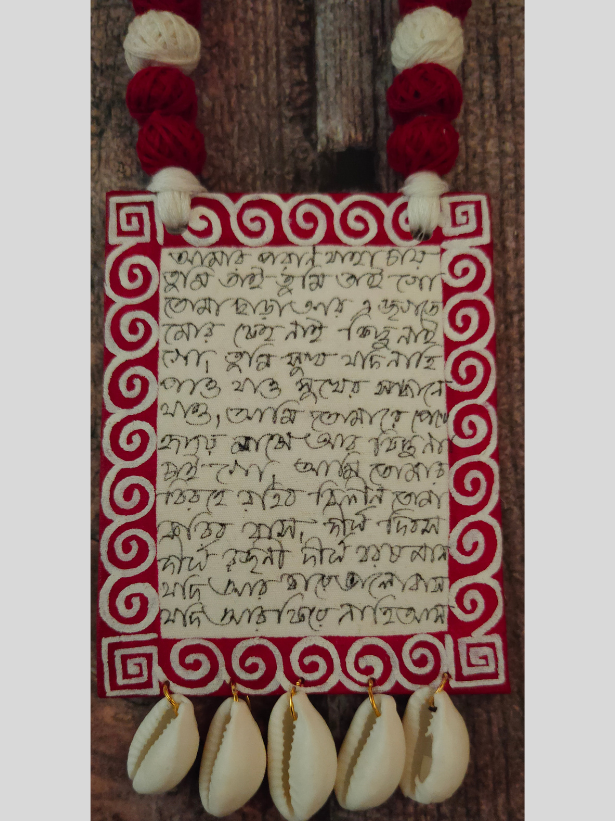 আমার পরান যাহা চায়
তুমি তাই তুমি তাই গো
তোমা ছাড়া আর এ জগতে
মোর কেহ নাই কিছু নাই
গো, তুমি সুখ যদি নাহি
পাও যাও সুখের সন্ধানে
যাও, আমি তোমারে পেয়েছি
হৃদয় মাঝে আর কিছু না
চাই গো, আমি তোমার
বিরহে রহিব বিলীন তোমা
করিব বাস, দীর্ঘ দিবস
দীর্ঘ রজনী দীর্ঘ বরষ মাস
যদি আর কারে ভালোবাস
যদি আর ফিরে নাহি আস